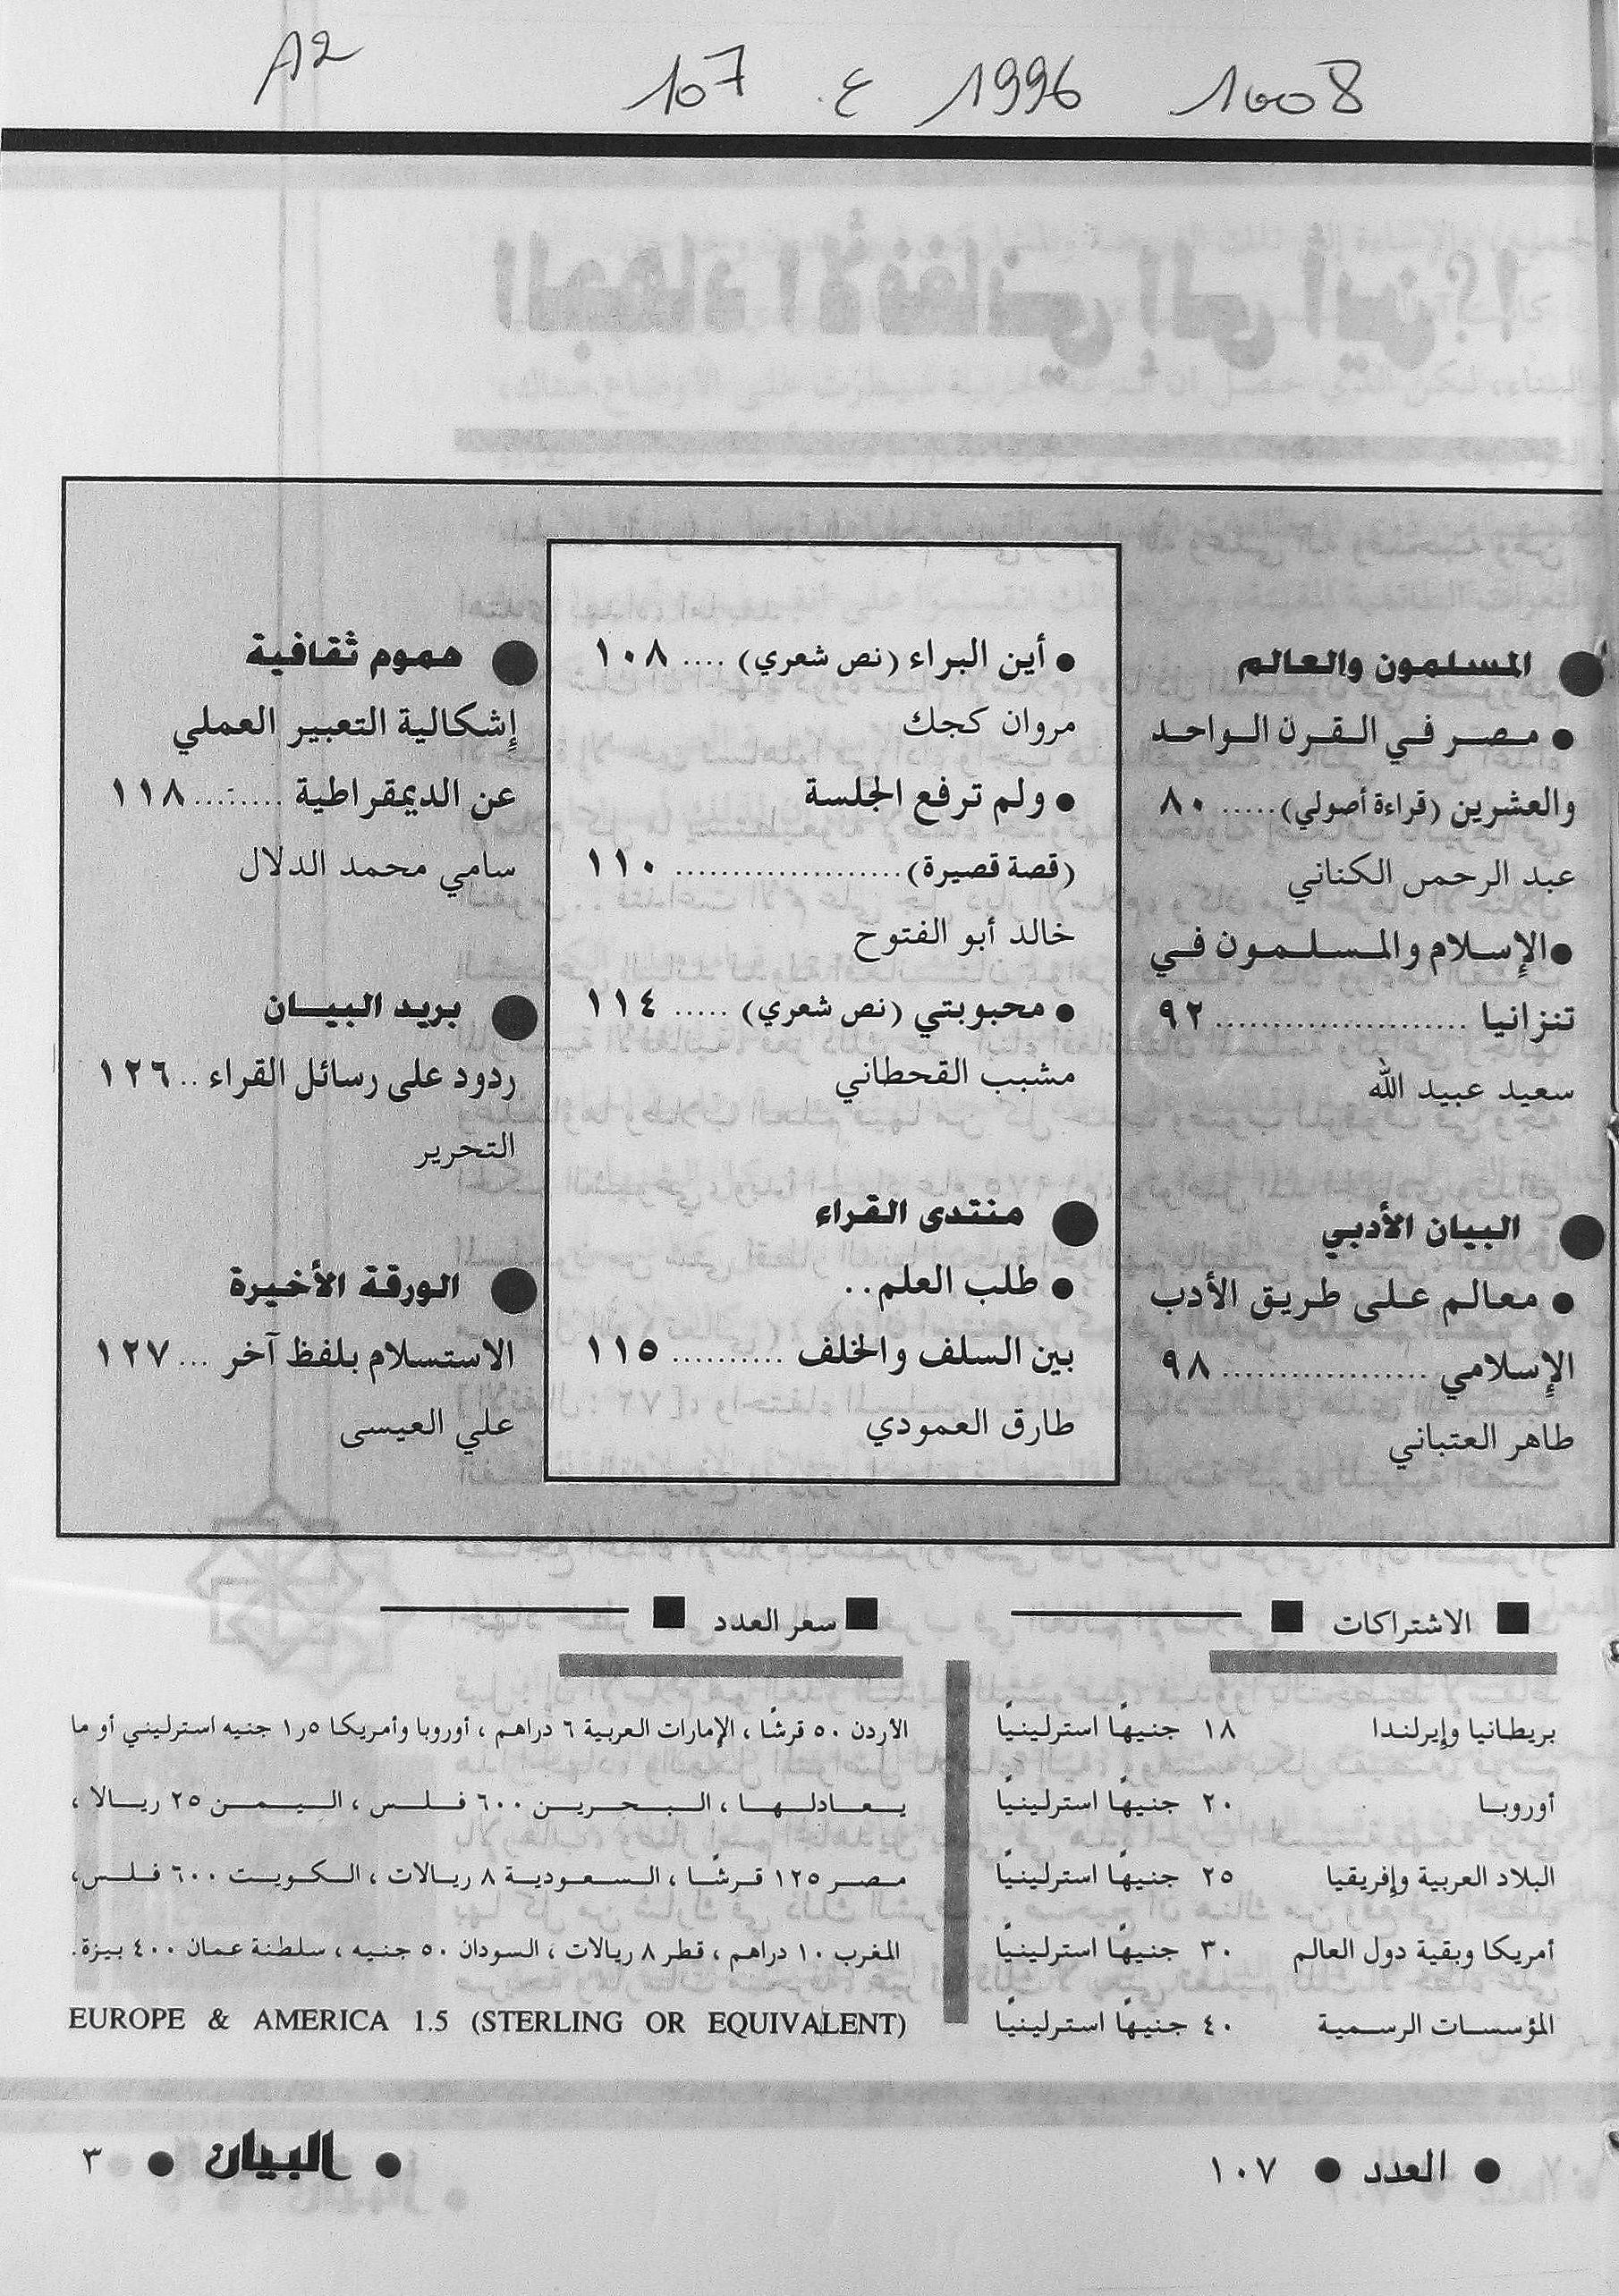 A2 107 ع. 1996 1008
المسلمون والعالم
● مصر في القرن الواحد
والعشرين (قراءة أصولي)..... ٨٠
عبد الرحمن الكناني
● الإسلام والمسلمون في
تنزانيا ...................... ٩٢
سعيد عبيد الله
البيان الأدبي
● معالم على طريق الأدب
الإسلامي .................. ٩٨
طاهر العتباني
● أين البراء (نص شعري) .... ١٠٨
مروان كجك
● ولم ترفع الجلسة
(قصة قصيرة).................... ١١٠
خالد أبو الفتوح
● محبوبتي (نص شعري) ..... ١١٤
مشبب القحطاني
منتدى القراء
● طلب العلم..
بين السلف والخلف .......... ١١٥
طارق العمودي
هموم ثقافية
إشكالية التعبير العملي
عن الديمقراطية ........ ١١٨
سامي محمد الدلال
بريد البيان
ردود على رسائل القراء .. ١٢٦
التحرير
الورقة الأخيرة
الاستسلام بلفظ آخر ... ١٢٧
علي العيسى
■ الاشتراكات ■
بريطانيا وإيرلندا ١٨ جنيهًا استرلينيًا
أوروبا ٢٠ جنيهًا استرلينيًا
البلاد العربية وإفريقيا ٢٥ جنيهًا استرلينيًا
أمريكا وبقية دول العالم ٣٠ جنيهًا استرلينيًا
المؤسسات الرسمية ٤٠ جنيهًا استرلينيًا
■ سعر العدد ■
الأردن ٥٠ قرشًا ، الإمارات العربية ٦ دراهم ، أوروبا وأمريكا ١٫٥ جنيه استرليني أو ما
يعادلها ، البحرين ٦٠٠ فلس ، اليمن ٢٥ ريالا ،
مصر ١٢٥ قرشًا ، السعودية ٨ ريالات ، الكويت ٦٠٠ فلس،
المغرب ١٠ دراهم ، قطر ٨ ريالات ، السودان ٥٠ جنيه ، سلطنة عمان ٤٠٠ بيزة.
EUROPE & AMERICA 1.5 (STERLING OR EQUIVALENT)
● العدد ● ١٠٧
● البيان ● ٣